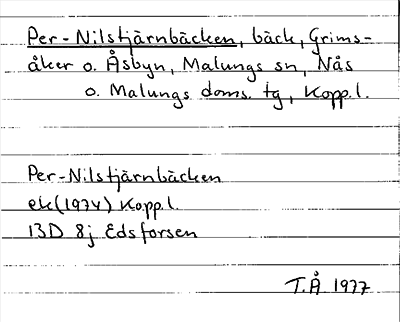 Per-Nilstjärnbäcken, bäck, Grims-
åker o. Åsbyn, Malungs sn, Nås
o. Malungs doms. tg, Kopp.l.
Per-Nilstjärnbäcken
ek(1974) Kopp.l.
13D 8j Edsforsen
T.Å 1977